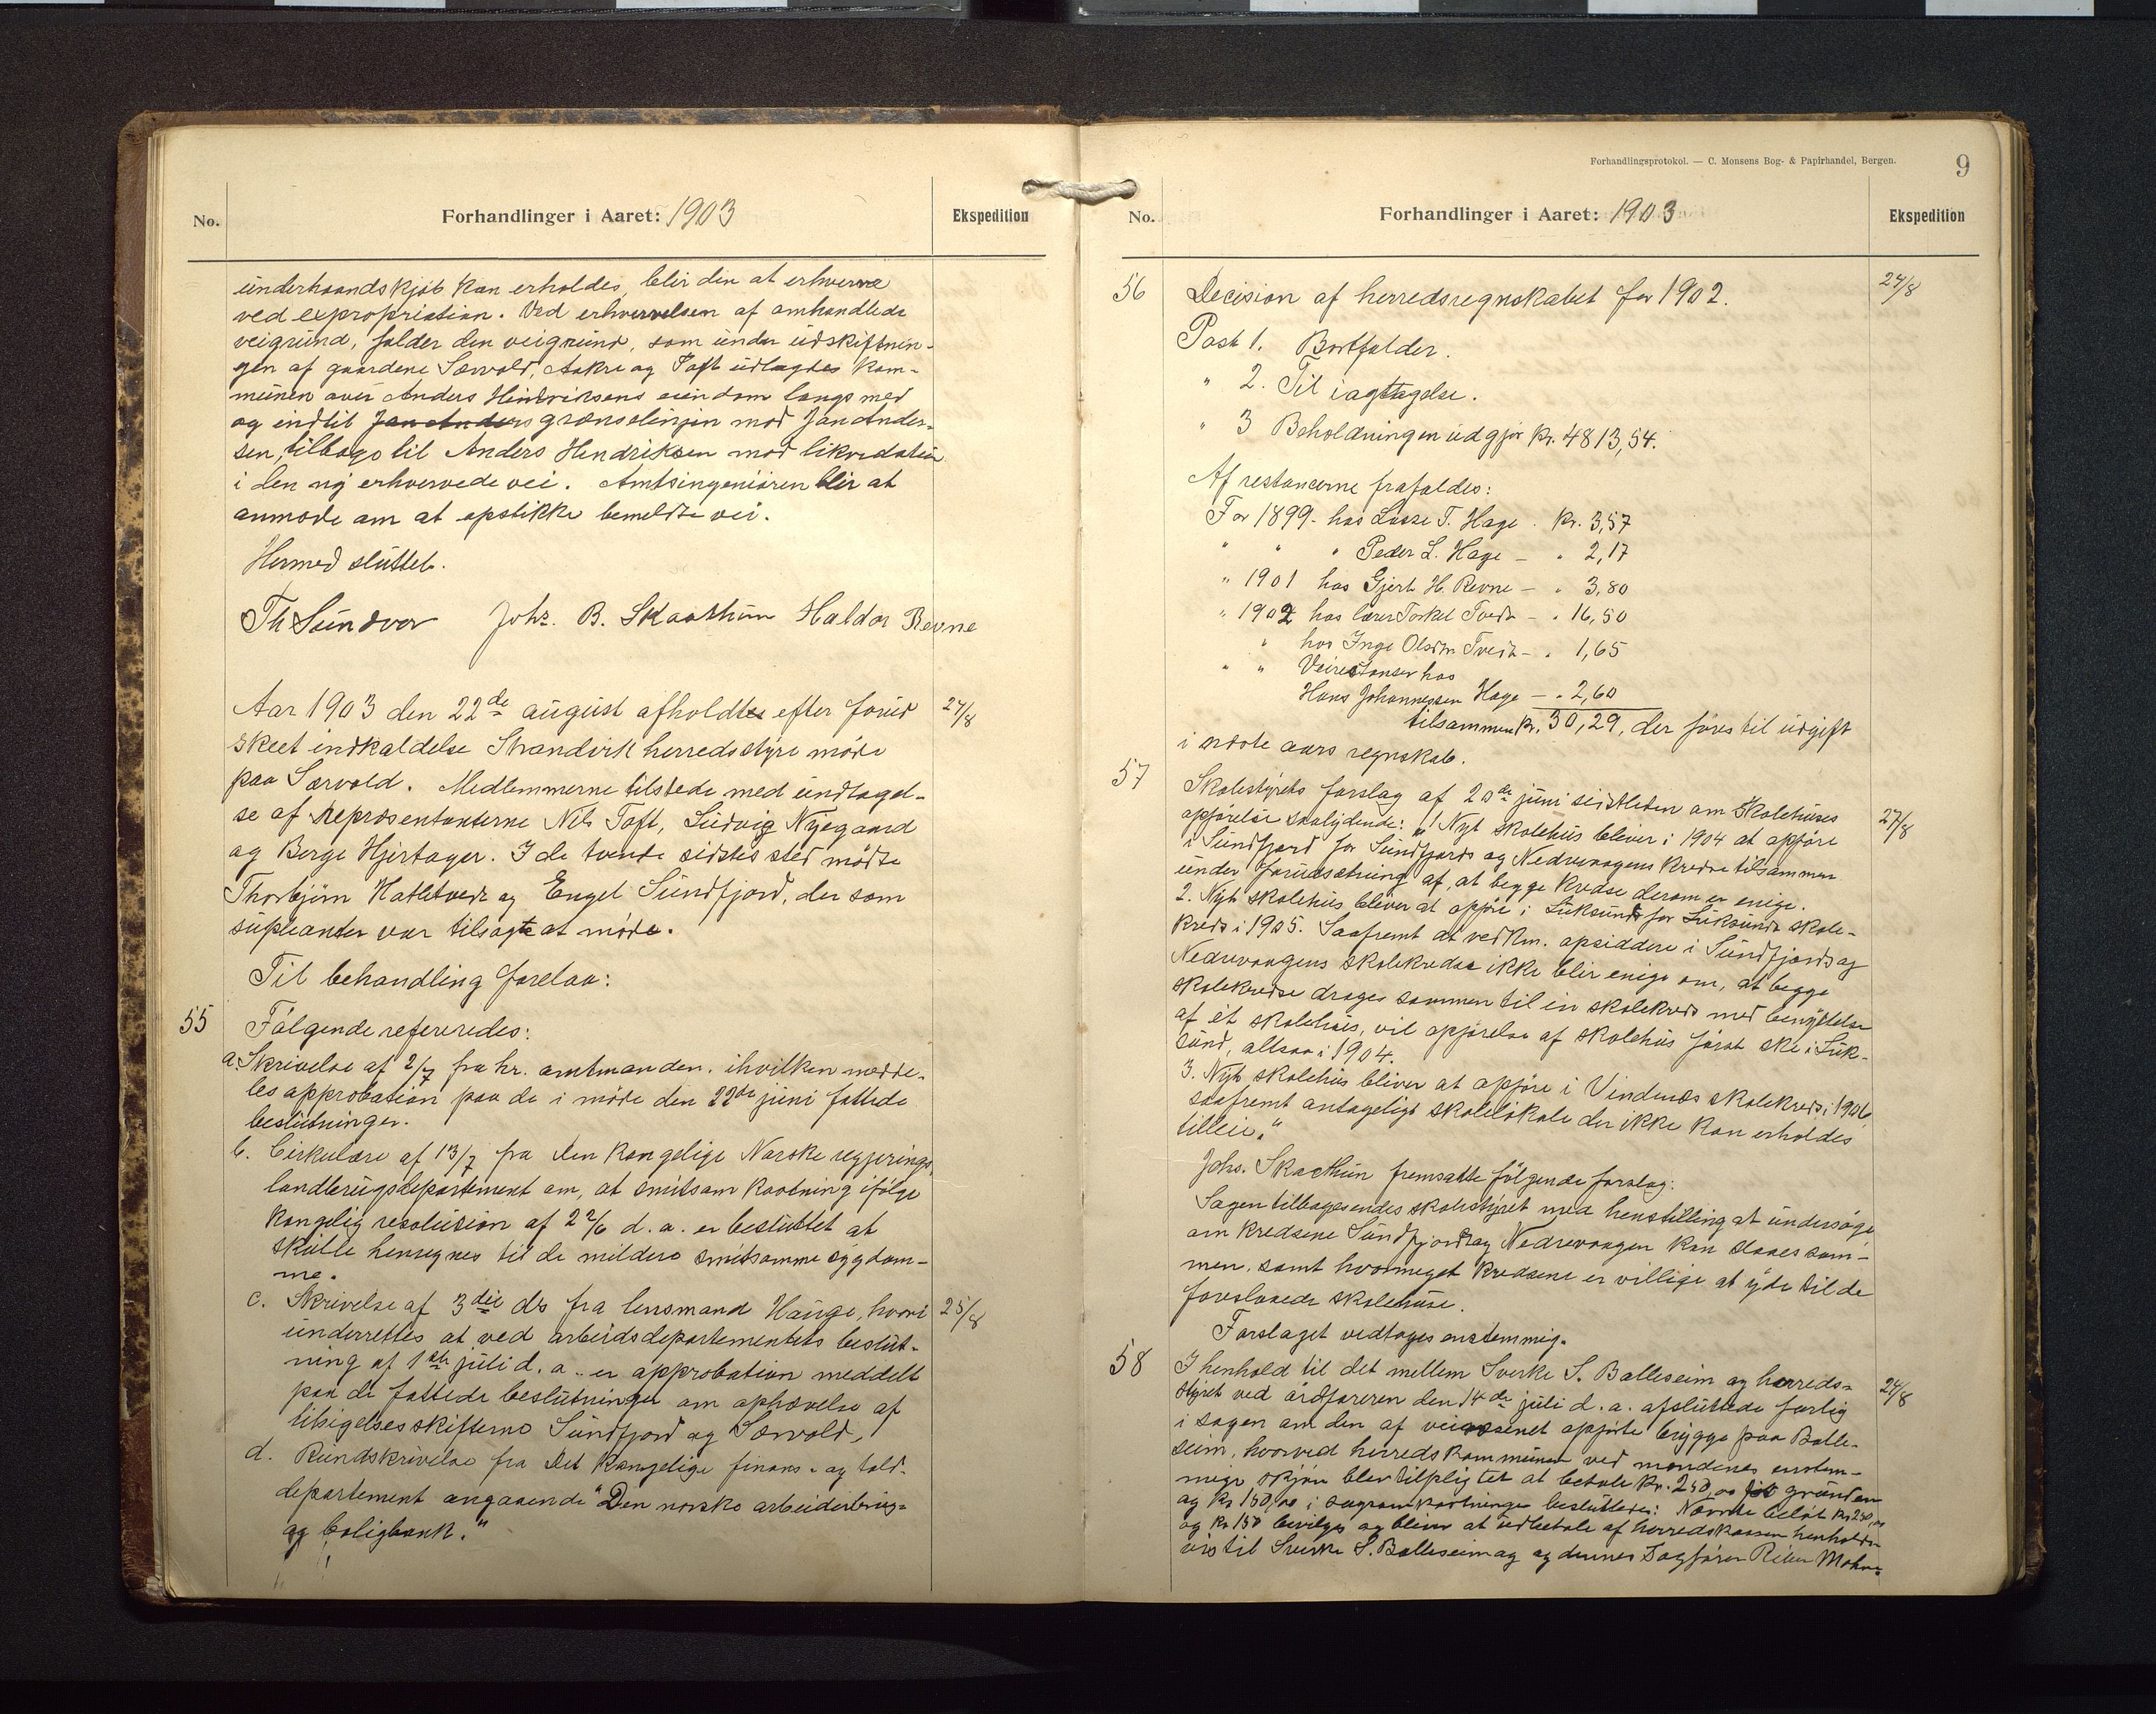 No.
Forhandlinger i Aaret: 1903
Ekspedition
underhaandskjøb kan erholdes, blir den at erhverve
ved expropriation. Ved erhvervelsen af omhandlede
veigrund, falder den veigrund, som under udskiftnin-
gen af gaardene Særvold, Aakre og Toft udlagdes kom-
munen over Anders Hindriksens eiendom langs med
og indtil Jan Anders grænselinjen mod Jan Ander-
sen, tilbage til Anders Hendriksen mod likvidation
i den ny erhvervede vei. Amtsingeniøren blir at
anmode om at opstikke bemeldte vei.
Hermed sluttet.
Th Sundvor Johs. B. Skaathun Haldor Revne
Aar 1903 den 22de august afholdtes efter forud 27/8
skeet indkaldelse Strandvik herredsstyre møde
paa Særvold. Medlemmerne tilstede med undtagel-
se af repræsentanterne Nils Toft, Ludvig Nygaard
og Berge Hjertager. I de tvende sidstes sted mødte
Thorbjørn Hatletvedt og Engel Sundfjord, der som
supleanter var tilsagte at møde.
Til behandling forelaa:
55 Følgende refereredes:
a. Skrivelse af 2/7 fra hr. amtmanden, ihvilken medde-
les approbation paa de i møde den 22de juni fattede
beslutninger.
b. Cirkulære af 13/7 fra den kongelige Norske regjerings
landbrugsdepartement om, at smitsom kastning ifølge
kongelig resolusion af 22/6 d. a. er besluttet at
skulle henregnes til de mildere smitsomme sygdom-
me.
c. Skrivelse af 3die ds fra lensmand Hauge, hvori 25/8
underrettes at ved arbeidsdepartementets beslut-
ning af 1ste juli d. a. er approbation meddelt
paa de fattede beslutninger om ophævelse af
libigelsesskifterne Sundfjord og Særvold,
d. Rundskrivelse fra Det kongelige finans- og told-
departement angaaende "Den norske arbeiderbrug-
og boligbank."
Forhandlingsprotokol. — C. Monsens Bog- & Papirhandel, Bergen.
9
No.
Forhandlinger i Aaret: 1903
Ekspedition
56 Decision af herredsregnskabet for 1902. 24/8
Post 1. Bortfalder.
" 2. Til iagttagelse.
" 3 Beholdningen udgjør kr. 4813,54.
Af restancerne frafaldes:
For 1899 - hos Lasse T. Hage . kr. 3,57
" " " Peder L. Hage — " 2,17
" 1901 hos Gjert H. Revne — " 3,80
" 1902 hos lærer Torkel Tvedt — " 16,50
" hos Inge Olsdtr. Tvedt — " 1,65
" " Veirestanser hos
Hans Johannessen Hage — " 2,60
tilsammen kr. 30,29, der føres til udgift
i næste aars regnskab.
57 Skolestyrets forslag af 20de juni sidstleden om skolehuses 27/8
opførelse saalydende: "1 Nyt skolehus bliver i 1904 at opføre
i Sundfjord for Sundfjords og Nedrevaagens kredse tilsammen
under forudsætning af, at begge kredse derom er enige.
2. Nyt skolehus bliver at opføre i Luksund for Luksunds skole-
kreds i 1905. Saafremt at vedkm. opsiddere i Sundfjords og
Nedrevaagens skolekredse ikke blir enige om, at begge
skolekredse drages sammen til en skolekreds med benyttelse
af ét skolehus, vil opførelse af skolehus først ske i Luk-
sund, altsaa i 1904.
3. Nyt skolehus bliver at opføre i Vindenæs skolekreds i 1906,
saafremt antageligt skolelokale der ikke kan erholdes
tilleie."
Johs. Skaathun fremsatte følgende forslag:
Sagen tilbagesendes skolestyret med henstilling at undersøge
om kredsene Sundfjord og Nedrevaagen kan slaaes sam-
men, samt hvormeget kredsene er villige at yde til de
foreslaaede skolehuse.
Forslaget vedtoges enstemmig.
58 I henhold til det mellem Sverke S. Balleseim og herreds- 24/8
styret ved ordføreren den 14de juli d. a. afsluttede forlig
i sagen om den af veivæsenet opførte brygge paa Balle-
seim, hvorved herredskommunen ved mændenes enstem-
mige skjøn blev tilpligtet at betale kr. 250,00 for grunden
og kr 150,00 i sagsomkostninger besluttedes: Nævnte beløb kr. 250,00
og kr 150 bevilges og bliver at udbetale af herredskassen henholds-
vis til Sverke S. Balleseim og dennes sagfører Riber Mohn.